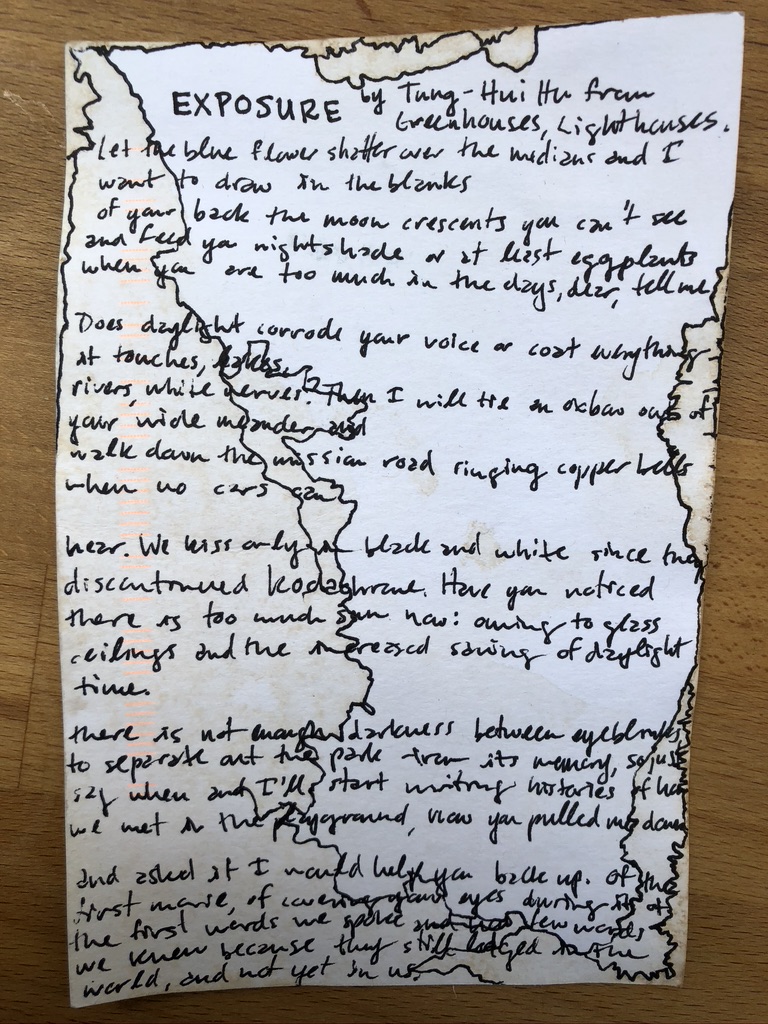 EXPOSURE by Tung-Hui Hu from
Greenhouses, Lighthouses.
Let the blue flower shatter over the medians and I
want to draw in the blanks
of your back the moon crescents you can't see
and feed you nightshade or at least eggplants
when you are too much in the days, dear, tell me
Does daylight corrode your voice or coat everything
it touches, lakes,
rivers, white nerves. Then I will tie an oxbow out of
your wide meander and
walk down the mission road ringing copper bells
when no cars can
hear. We kiss only in black and white since they
discontinued Kodachrome. Have you noticed
there is too much sun now: owing to glass
ceilings and the increased saving of daylight
time.
there is not enough darkness between eyeblinks
to separate out the park from its memory, so just
say when and I'll start writing histories of how
we met in the playground, how you pulled me down
and asked if I would help you back up. Of the
first movie, of covering your eyes during it, of
the first words we spoke and how few words
we knew because they still lodged in the
world, and not yet in us.